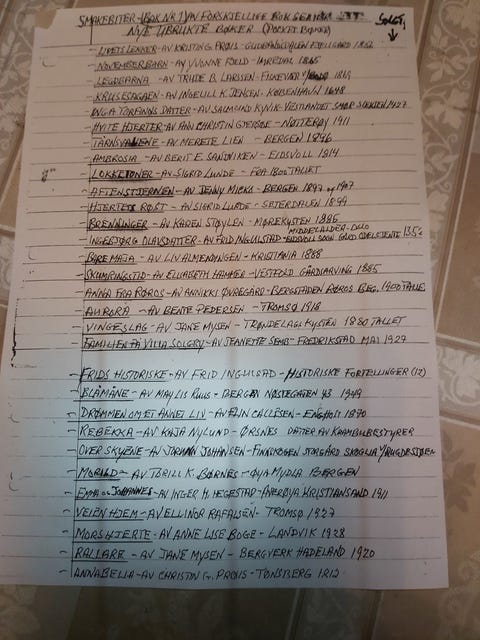 SMAKEBITER - (BOK NR 1) AV FORSKJELLIGE BOKSERIER
SOLGT ↓
NYE UBRUKTE BØKER (POCKET BØKER)
- LIVETS LENKER - AV KRISTINE PRØIS - FJELLGARD 1852
- NOVEMBERBARN - AV YVONNE FJELD - 1865
- LEGDEJENTA - AV TRINE B. LARSSEN 1869
- KRUSESAGAEN - AV INGELILL K. JENSEN - KØBENHAVN 1648
- INGA TORFINNS DATTER - AV
- HVITE HJERTER - AV ANN CHRISTIN - NØTTERØY 1911
- TÅRNSVALENE - AV MERETE LIEN - BERGEN 1896
- AMBROSIA - AV BERIT E. SANDVIKEN - EIDSVOLL 1814
- LOKKETONER - AV SIGRID LUNDE - FRA 1800 TALLET
- AFTENSTJERNEN - AV JENNY MICKO - BERGEN 1897 og 1907
- HJERTETS RØST - AV SIGRID LUNDE - SETERDALEN 1899
- BRENNINGER - AV KAREN STØYLEN - MØREKYSTEN 1885
MIDDELALDER - OSLO
- INGEBJØRG OLAVSDATTER - AV FRID INGULSTAD -
- BARE MAJA - AV LIV ALMENDINGEN - KRISTIANIA 1888
- SKUMRINGSTID - AV ELISABETH HAMMER - VESTFOLD GÅRDIARVING 1885
- ANNA FRA RØROS - AV ANNIKKI ØVREGÅRD - BERGSTADEN RØROS BEG. 1900 TALLET
- AURORA - AV BENTE PEDERSEN - TROMSØ 1918
- VINGESLAG - AV JANE MYSEN - TRØNDELAGSKYSTEN 1880 TALLET
- FAMILIEN PÅ VILLA SOLGRY - AV JEANETTE SEMB - FREDRIKSTAD MAI 1927
- FRIDS HISTORISKE - AV FRID INGULSTAD - HISTORISKE FORTELLINGER (12)
- BLÅMANE - AV MAY LIS RUUS - BERGEN NØSTEGATEN 43 1949
- DRØMMEN OM ET ANNET LIV - AV ELIN CALLESEN - ENGHOLT 1870
- REBEKKA - AV KAJA NYLUND - ØRSNES DATTER AV KRAMBUBESTYRER
- OVER SKYENE - AV JORUNN JOHANSEN - FINNSKOGEN STORGÅRD SKOGLIA
- MORILD - AV TORILL K. BØRNES - ØYA MYDLA BERGEN
- EMMA og JOHANNES - AV INGER H. HEGESTAD - KRISTIANSAND 1911
- VEIEN HJEM - AV ELLINOR RAFAELSEN - TROMSØ 1927
- MORSHJERTE - AV ANNE LISE BOGE - LANDVIK 1928
- RALLARE - AV JANE MYSEN - BERGVERK HADELAND 1920
- ANNABELLA - AV CHRISTIN G. PRØIS - TØNSBERG 1812